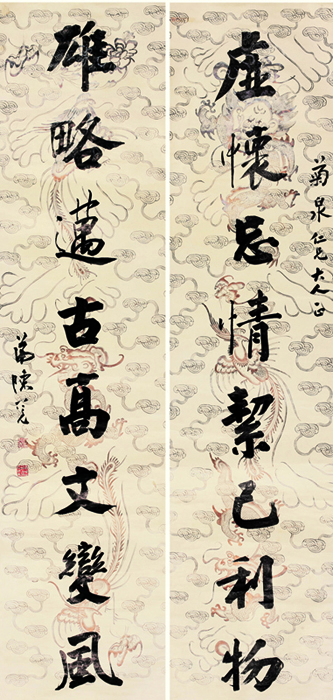 菊泉仁兄大人正
虛懷忘情絜己利物
雄略邁古高文變風
弟陳冕